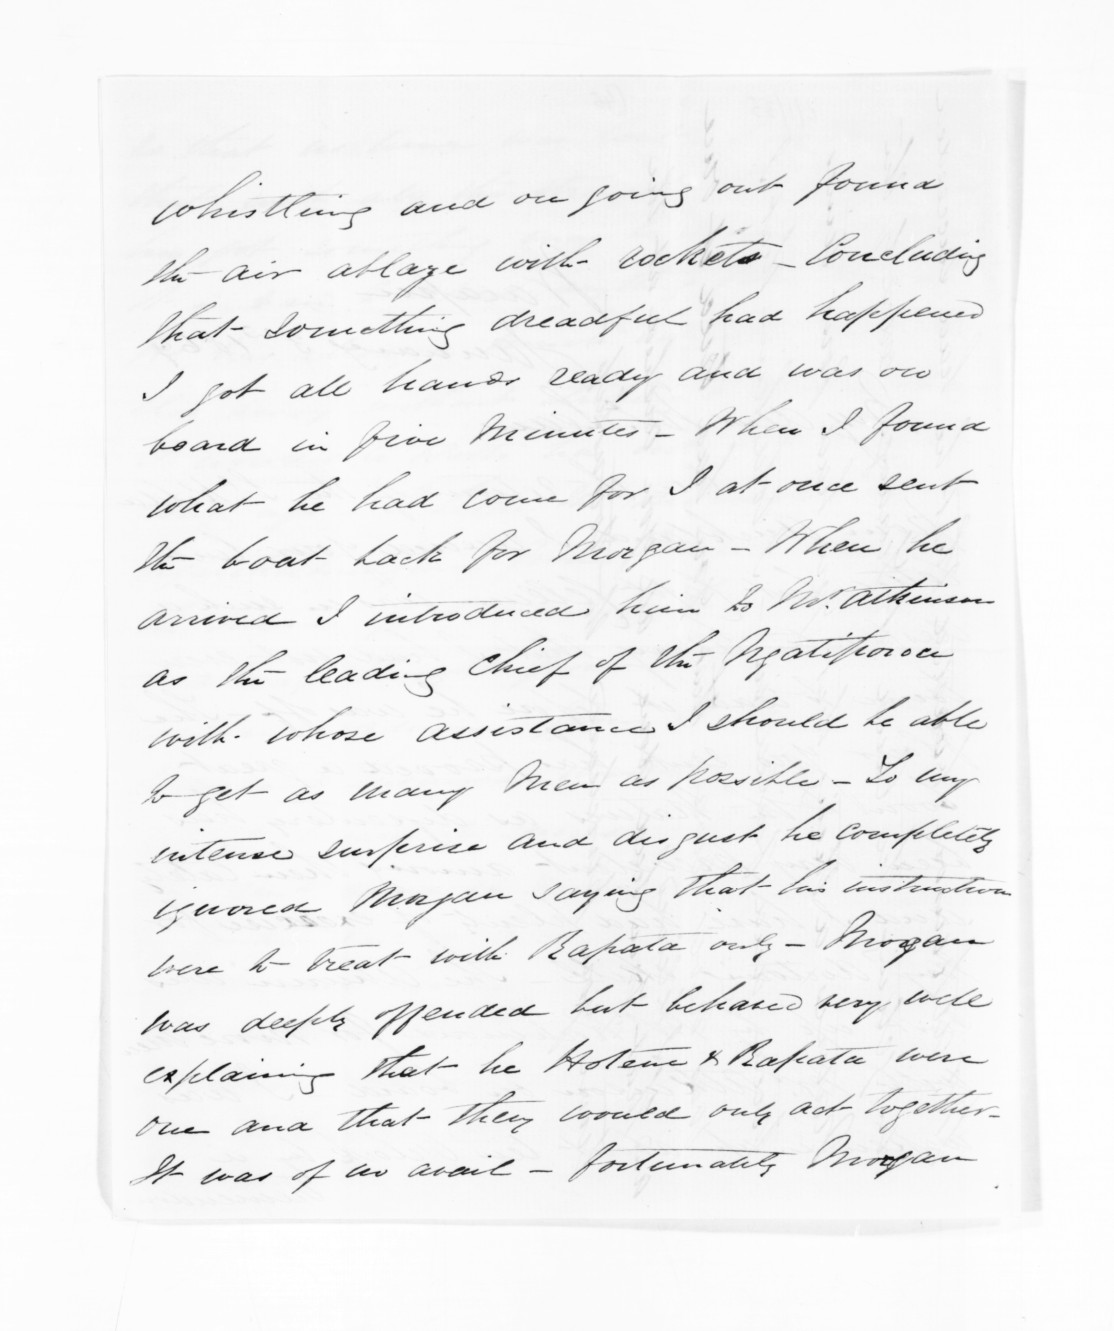 whistling and on going out found
the air ablaze with rockets - Concluding
that something dreadful had happened
I got all hands ready and was on
board in five minutes - When I found
what he had come for I at once sent
the boat back for Morgan - When he
arrived I introduced him to Mr. Atkinson
as the leading Chief of the Ngatiporou
with whose assistance I should be able
to get as many Men as possible - To my
intense surprise and disgust he completely
ignored Morgan saying that his instructions
were to treat with Rapata only - Morgan
was deeply offended but behaved very well
explaining that he Hotene & Rapata were
one and that they would only act together -
It was of no avail - fortunately Morgan